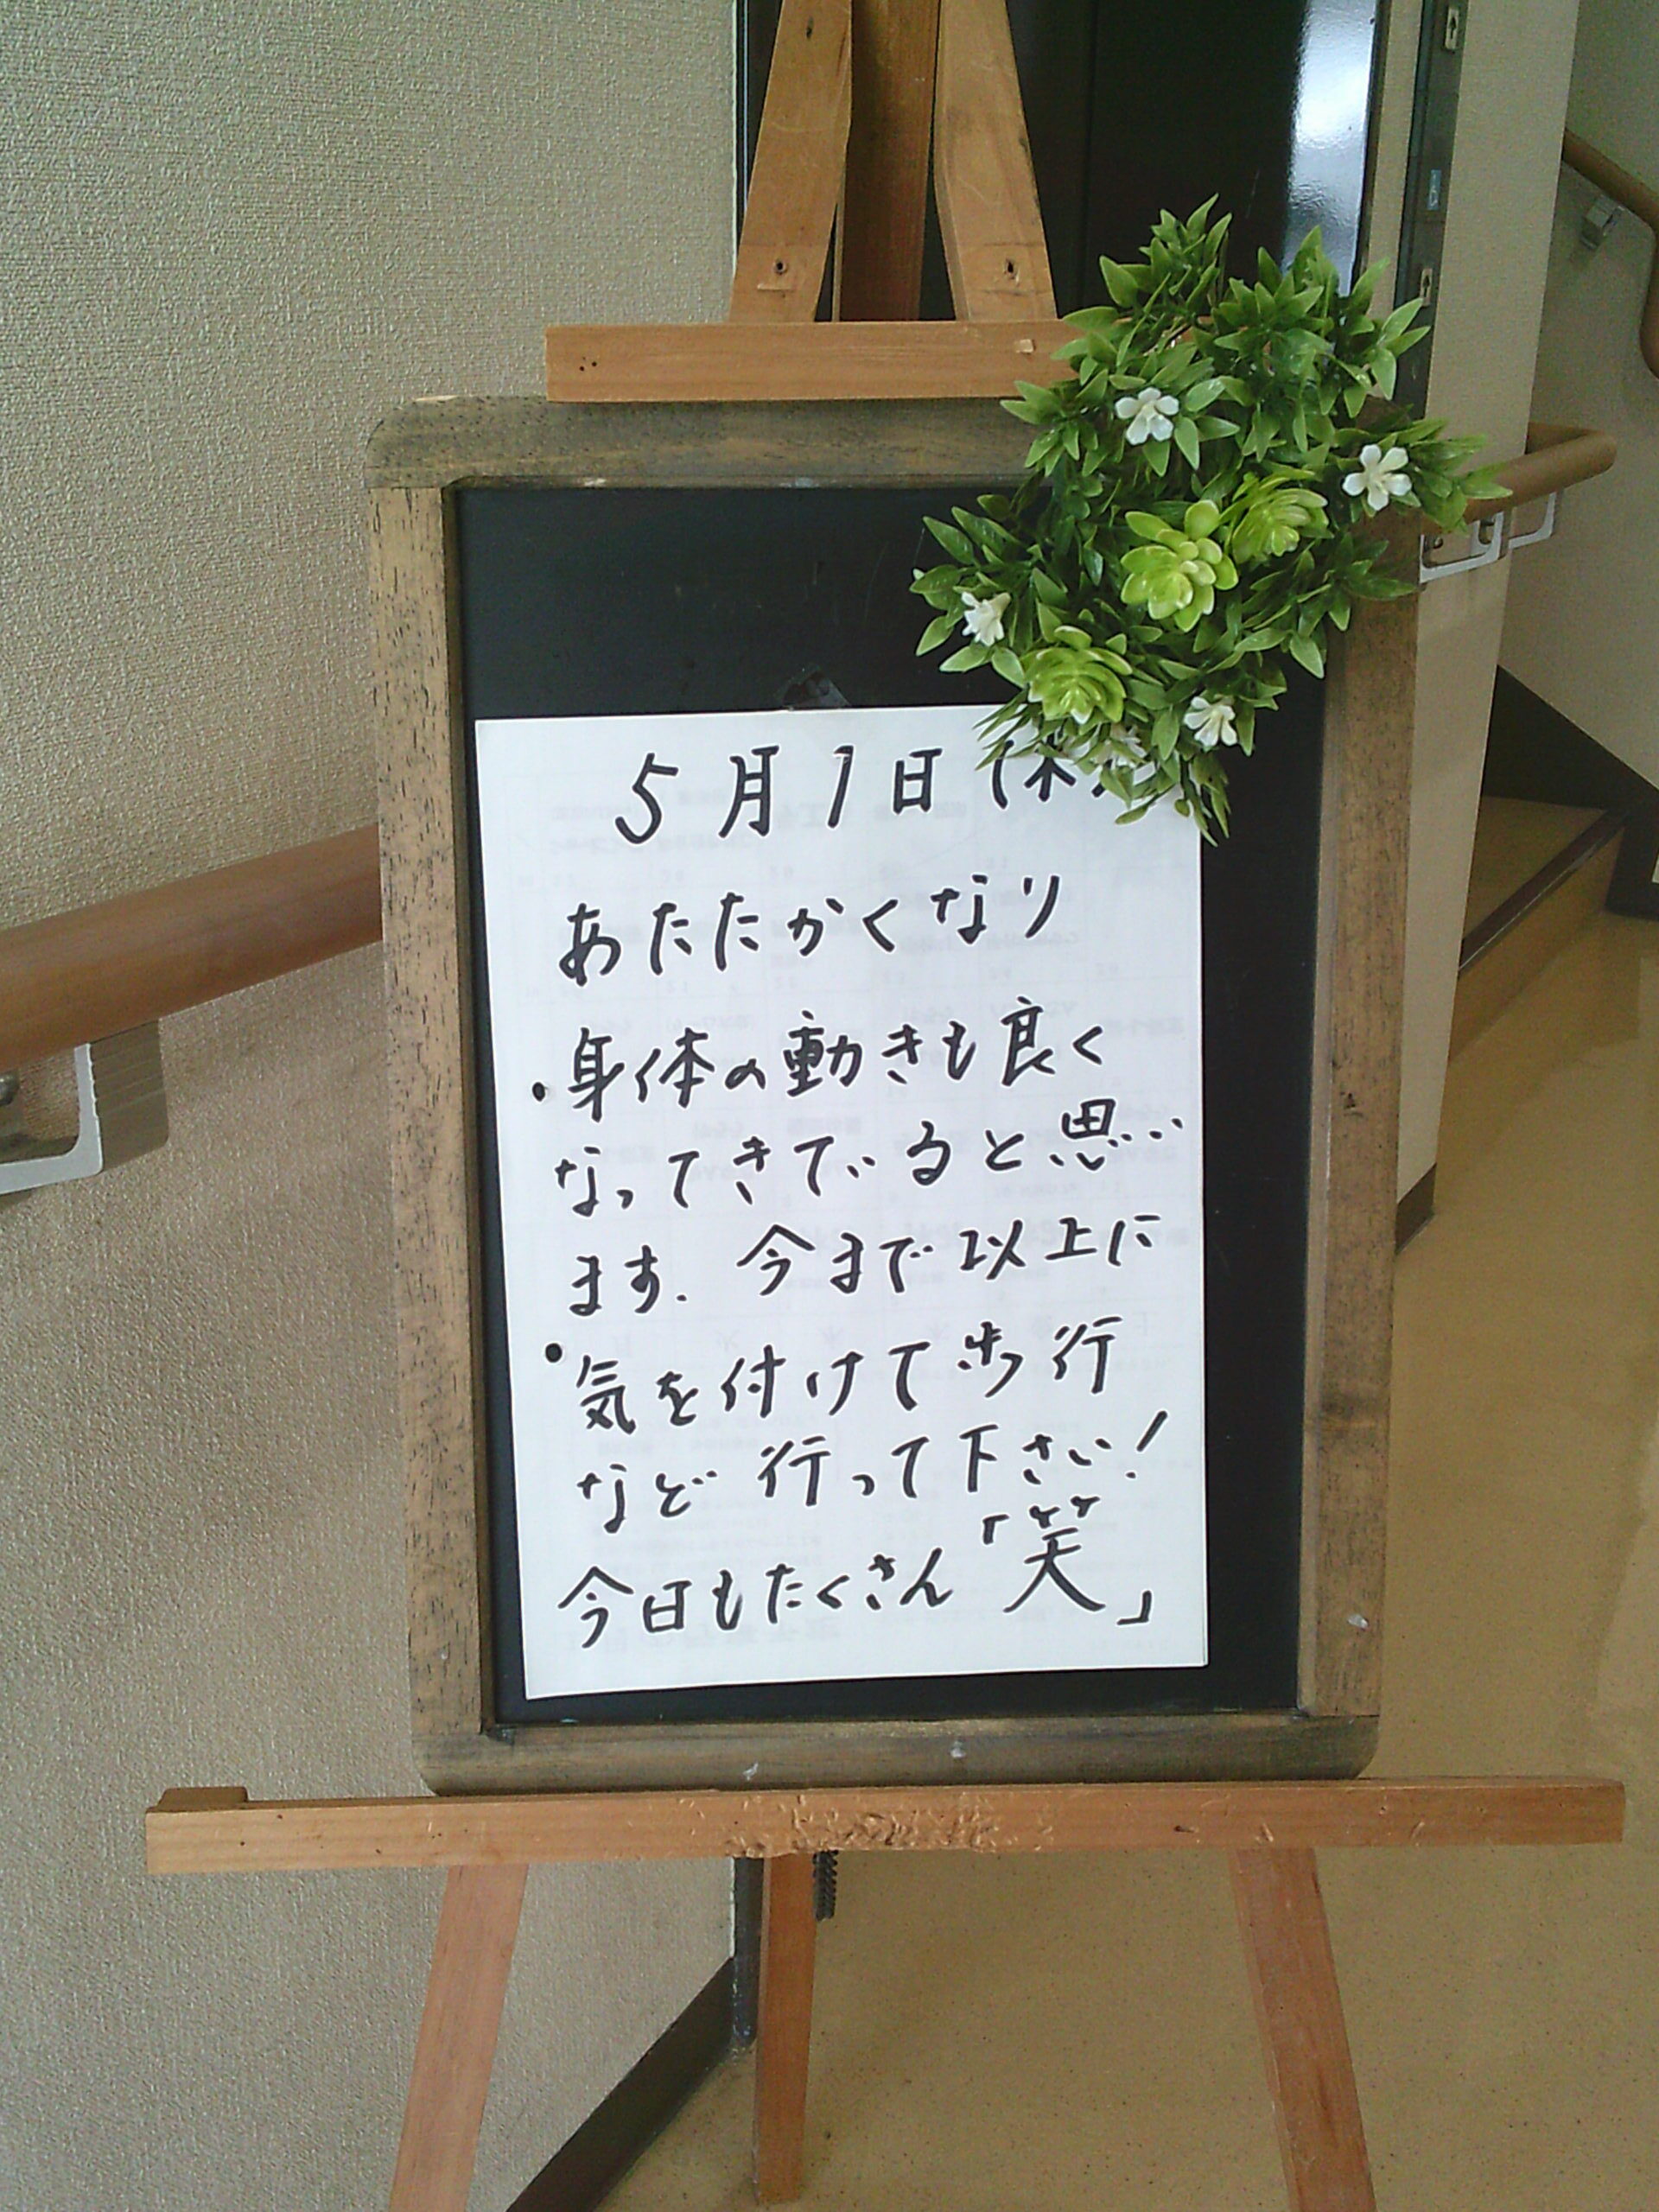 5月1日(木)
あたたかくなり
・身体の動きも良く
なってきていると思い
ます.今まで以上に
・気を付けて歩行
など行って下さい!
今日もたくさん「笑」